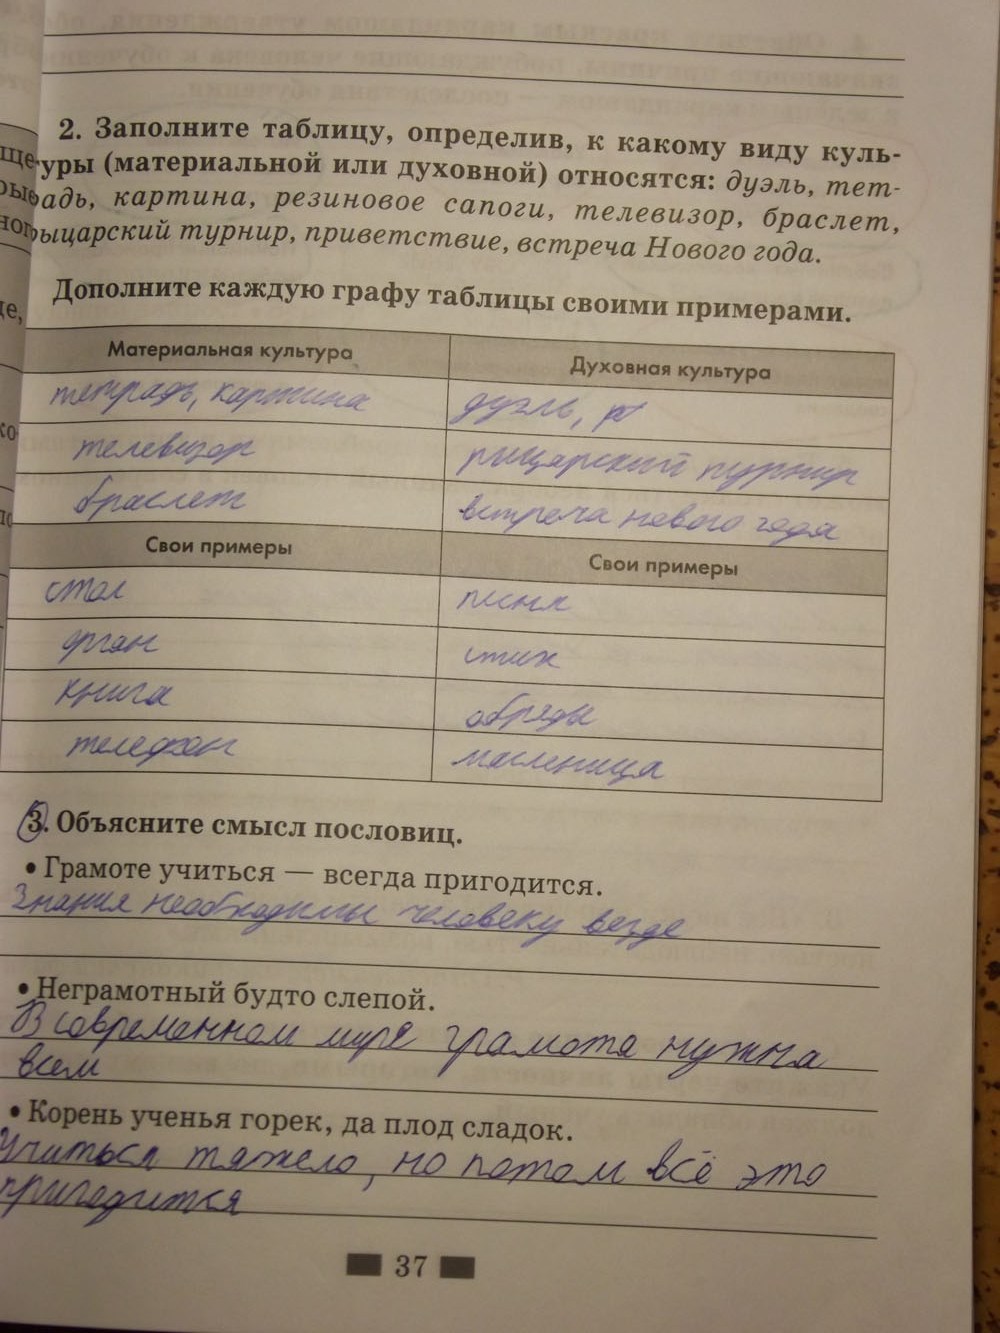 2. Заполните таблицу, определив, к какому виду куль-
уры (материальной или духовной) относятся: дуэль, тет-
адь, картина, резиновое сапоги, телевизор, браслет,
рыцарский турнир, приветствие, встреча Нового года.
Дополните каждую графу таблицы своими примерами.
Материальная культура
Духовная культура
тетрадь, картина
дуэль, р
телевизор
рыцарский турнир
браслет
встреча нового года
Свои примеры
Свои примеры
стол
орган
стих
книга
обряды
телефон
масленица
3. Объясните смысл пословиц.
• Грамоте учиться — всегда пригодится.
Знания необходимы человеку везде
• Неграмотный будто слепой.
В современном мире грамота нужна
всем
• Корень ученья горек, да плод сладок.
Учиться тяжело, но потом всё это
пригодится
37